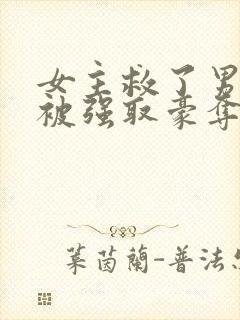 女主救了男
被强取豪夺
葉茵蘭-普法